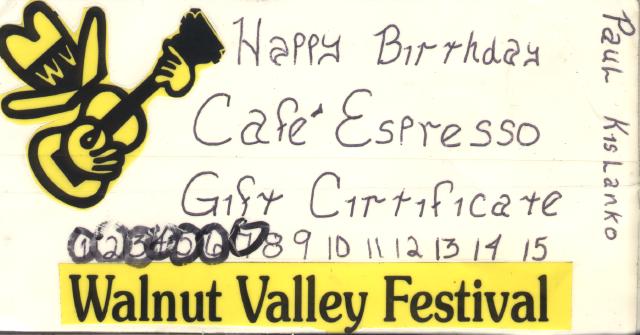 WV
Happy Birthday
Café Espresso
Gift Cirtificate
1 2 3 4 5 6 7 8 9 10 11 12 13 14 15
Walnut Valley Festival
Paul Kislanko